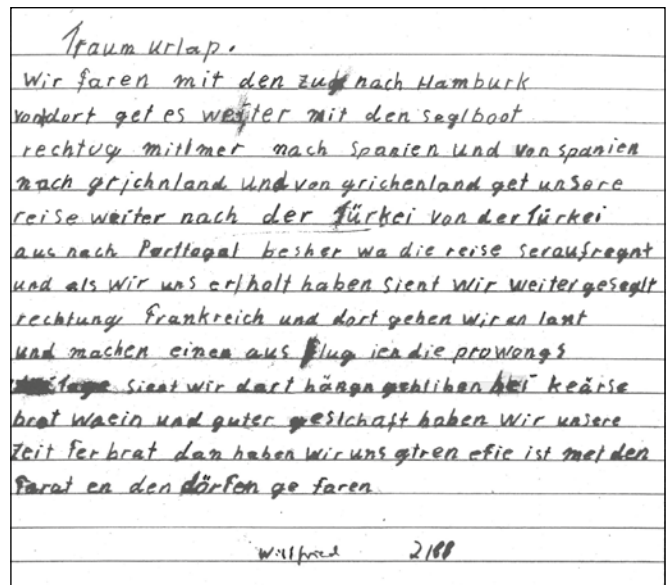 Traum urlap.
Wir faren mit den zug nach Hamburk
von dort get es weiter mit den seglboot
rechtug mittmer nach spanien und von spanien
nach grichnland und von grichenland get unsere
reise weiter nach der Türkei von der Türkei
aus nach Porttogal besher wa die reise seraufregnt
und als wir uns erholt haben sient wir weiter geseglt
rechtung Frankreich und dort gehen wir an lant
und machen einen aus flug ien die prowongs
tage sient wir dort hängn gebliben bei keärse
brot waein und guter geslchaft haben wir unsere
zeit ferbrat dan haben wir uns gtren efie ist met den
farat en den dörfen ge faren
Willfried 2/88